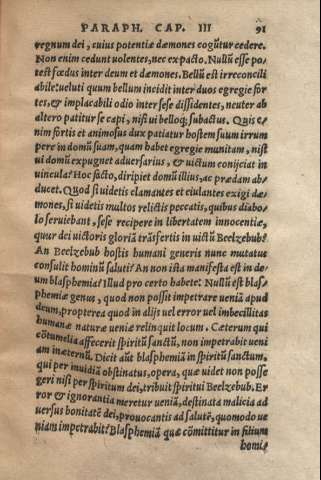 PARAPH. CAP. III 91
regnum dei, cuius potentiæ dæmones cogũtur cedere.
Non enim cedunt uolentes, nec ex pacto. Nullũ esse po
test fœdus inter deum et dæmones. Bellũ est irreconcili
abile: ueluti quum bellum incidit inter duos egregie for
tes, & implacabili odio inter sese dissidentes, neuter ab
altero patitur se capi, nisi ui belloq; subactus. Quis e-
nim fortis et animosus dux patiatur hostem suum irrum
pere in domũ suam, quam habet egregie munitam, nisi
ui domũ expugnet aduersarius, & uictum conijciat in
uincula? Hoc facto, diripiet domũ illius, ac prædam ab-
ducet. Quod si uidetis clamantes et eiulantes exigi dæ-
mones, si uidetis multos relictis peccatis, quibus diabo-
lo seruiebant, sese recipere in libertatem innocentiæ,
quur dei uictoris gloriã trãsfertis in uictũ Beelzebub?
An Beelzebub hostis humani generis nunc mutatus
consulit hominũ saluti? An non ista manifesta est in de-
um blasphemia? Illud pro certo habete: Nullũ est blas-
phemiæ genus, quod non possit impetrare ueniã apud
deum, propterea quod in alijs uel error uel imbecillitas
humanæ naturæ ueniæ relinquit locum. Cæterum qui
cõtumelia affecerit spiritũ sanctũ, non impetrabit ueni
am inæternũ. Dicit aũt blasphemiã in spiritũ sanctum,
qui per inuidiã obstinatus, opera, quæ uidet non posse
geri nisi per spiritum dei, tribuit spiritui Beelzebub. Er
ror & ignorantia meretur ueniã, destinata malicia ad
uersus bonitatẽ dei, prouocantis ad salutẽ, quomodo ue
niam impetrabit? Blasphemiã quæ cõmittitur in filium
homi=